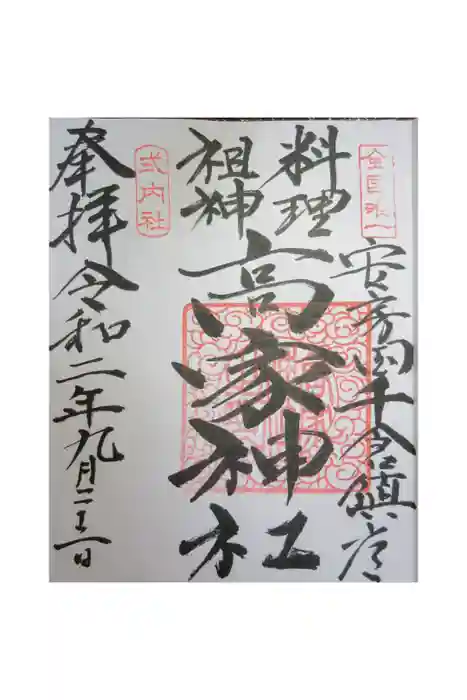 全国唯一
安房国千倉鎮座
料理
祖神
高家神社
式内社
奉拝令和二年九月二十一日